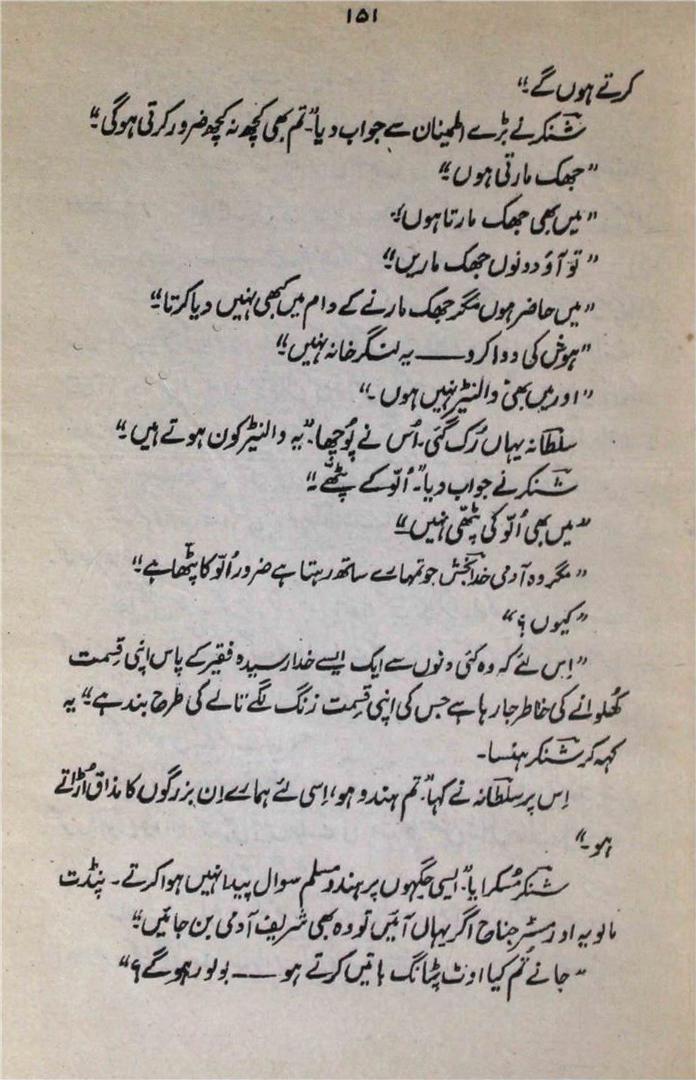 ۱۵۱
کرتے ہوں گے۔"
شنکر نے بڑے اطمینان سے جواب دیا۔ "تم بھی کچھ نہ کچھ ضرور کرتی ہوگی۔"
"جھک مارتی ہوں۔"
"میں بھی جھک مارتا ہوں۔"
"تو آؤ دونوں جھک ماریں۔"
"میں حاضر ہوں مگر جھک مارنے کے دام میں کبھی نہیں دیا کرتا۔"
"ہوش کی دوا کرو ـــــ یہ لنگر خانہ نہیں۔"
"اور میں بھی والنٹیر نہیں ہوں۔"
سلطانہ یہاں رُک گئی۔ اُس نے پُوچھا۔ "یہ والنٹیر کون ہوتے ہیں۔"
شنکر نے جواب دیا۔ "اُلّو کے پٹھے۔"
"میں بھی اُلّو کی پٹھی نہیں۔"
"مگر وہ آدمی خدا بخش جو تمہارے ساتھ رہتا ہے ضرور اُلّو کا پٹھا ہے۔"
"کیوں؟"
"اِس لئے کہ وہ کئی دنوں سے ایک ایسے خدا رسیدہ فقیر کے پاس اپنی قِسمت
کھُلوانے کی خاطر جا رہا ہے جس کی اپنی قِسمت زنگ لگے تالے کی طرح بند ہے۔" یہ
کہہ کر شنکر ہنسا۔
اِس پر سلطانہ نے کہا۔ "تم ہندو ہو، اِسی لئے ہمارے اِن بزرگوں کا مذاق اُڑاتے
ہو۔"
شنکر مُسکرایا۔ "ایسی جگہوں پر ہندو مسلم سوال پیدا نہیں ہوا کرتے۔ پنڈت
مالویہ اور مسٹر جناح اگر یہاں آئیں تو وہ بھی شریف آدمی بن جائیں۔"
"جانے تم کیا اوٹ پٹانگ باتیں کرتے ہو ـــــ بولو رہو گے؟"